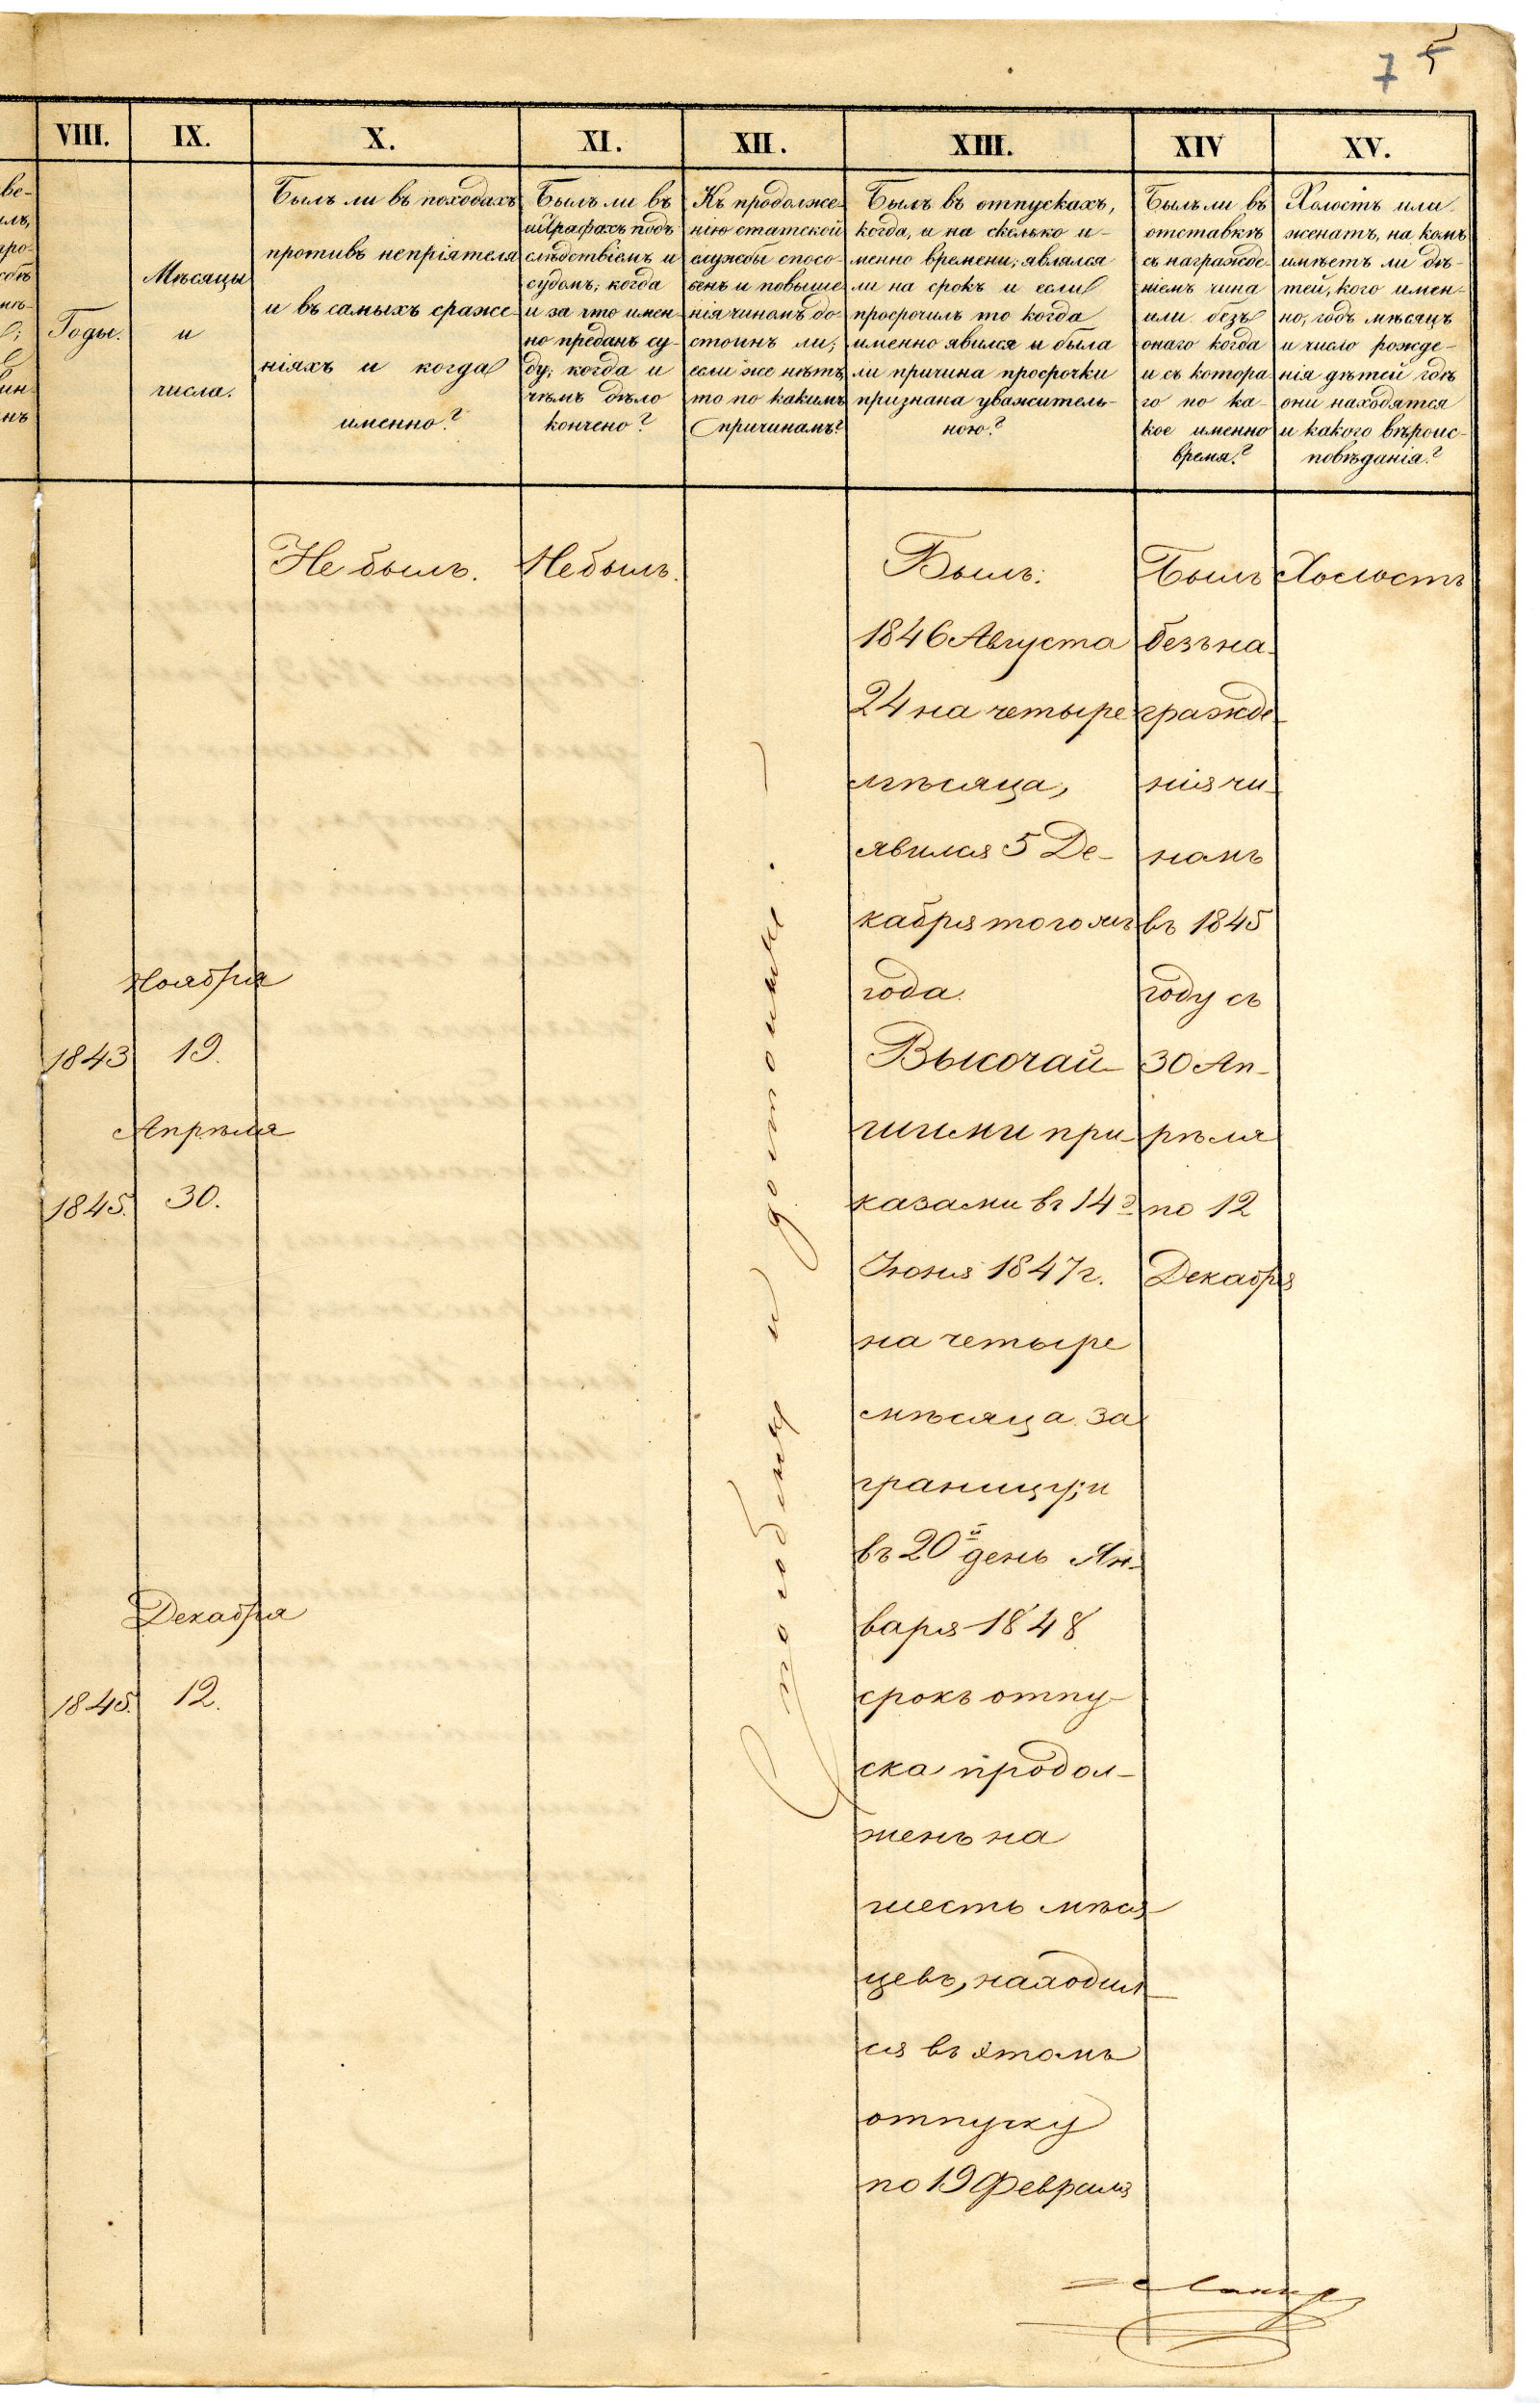 7 5
VIII.
IX.
X.
XI.
XII.
XIII.
XIV
XV.
Годы.
Мѣсяцы
и
числа.
Былъ ли въ походахъ
противъ непріятеля
и въ самыхъ сраже-
ніяхъ и когда
именно?
Былъ ли въ
штрафахъ подъ
слѣдствіемъ и
судомъ; когда
и за что имен-
но преданъ су-
ду; когда и
чѣмъ дѣло
кончено?
Къ продолже-
нію статской
службы спосо-
бенъ и повыше
нія чиномъ до-
стоинъ ли;
если же нѣтъ
то по какимъ
причинамъ?
Былъ въ отпускахъ,
когда, и на сколько и-
менно времени; являлся
ли на срокъ и если
просрочилъ то когда
именно явился и была
ли причина просрочки
признана уважитель-
ною?
Былъ ли въ
отставкѣ
съ награжде-
ніемъ чина
или безъ
онаго когда
и съ котора-
го по ка-
кое именно
время?
Холостъ или
женатъ, на комъ
имѣетъ ли дѣ-
тей, кого имен-
но, годъ мѣсяцъ
и число рожде-
нія дѣтей гдѣ
они находятся
и какого вѣроис-
повѣданія?
Ноября
1843 19.
Апрѣля
1845. 30.
Декабря
1845. 12.
Не былъ.
Не былъ.
Способенъ и достоинъ.
Былъ:
1846 Августа
24 на четыре
мѣсяца,
явился 5 Де-
кабря того жъ
года.
Высочай-
шими при-
казами въ 14 й
Іюня 1847 г.
на четыре
мѣсяца за
границу; и
въ 20й день Ян-
варя 1848
срокъ отпу-
ска продол-
женъ на
шесть мѣся-
цевъ, находил-
ся въ этомъ
отпуску
по 19 Февраля
Былъ
безъ на-
гражде-
нія чи-
номъ
въ 1845
году съ
30 Ап-
рѣля
по 12
Декабря
Холостъ